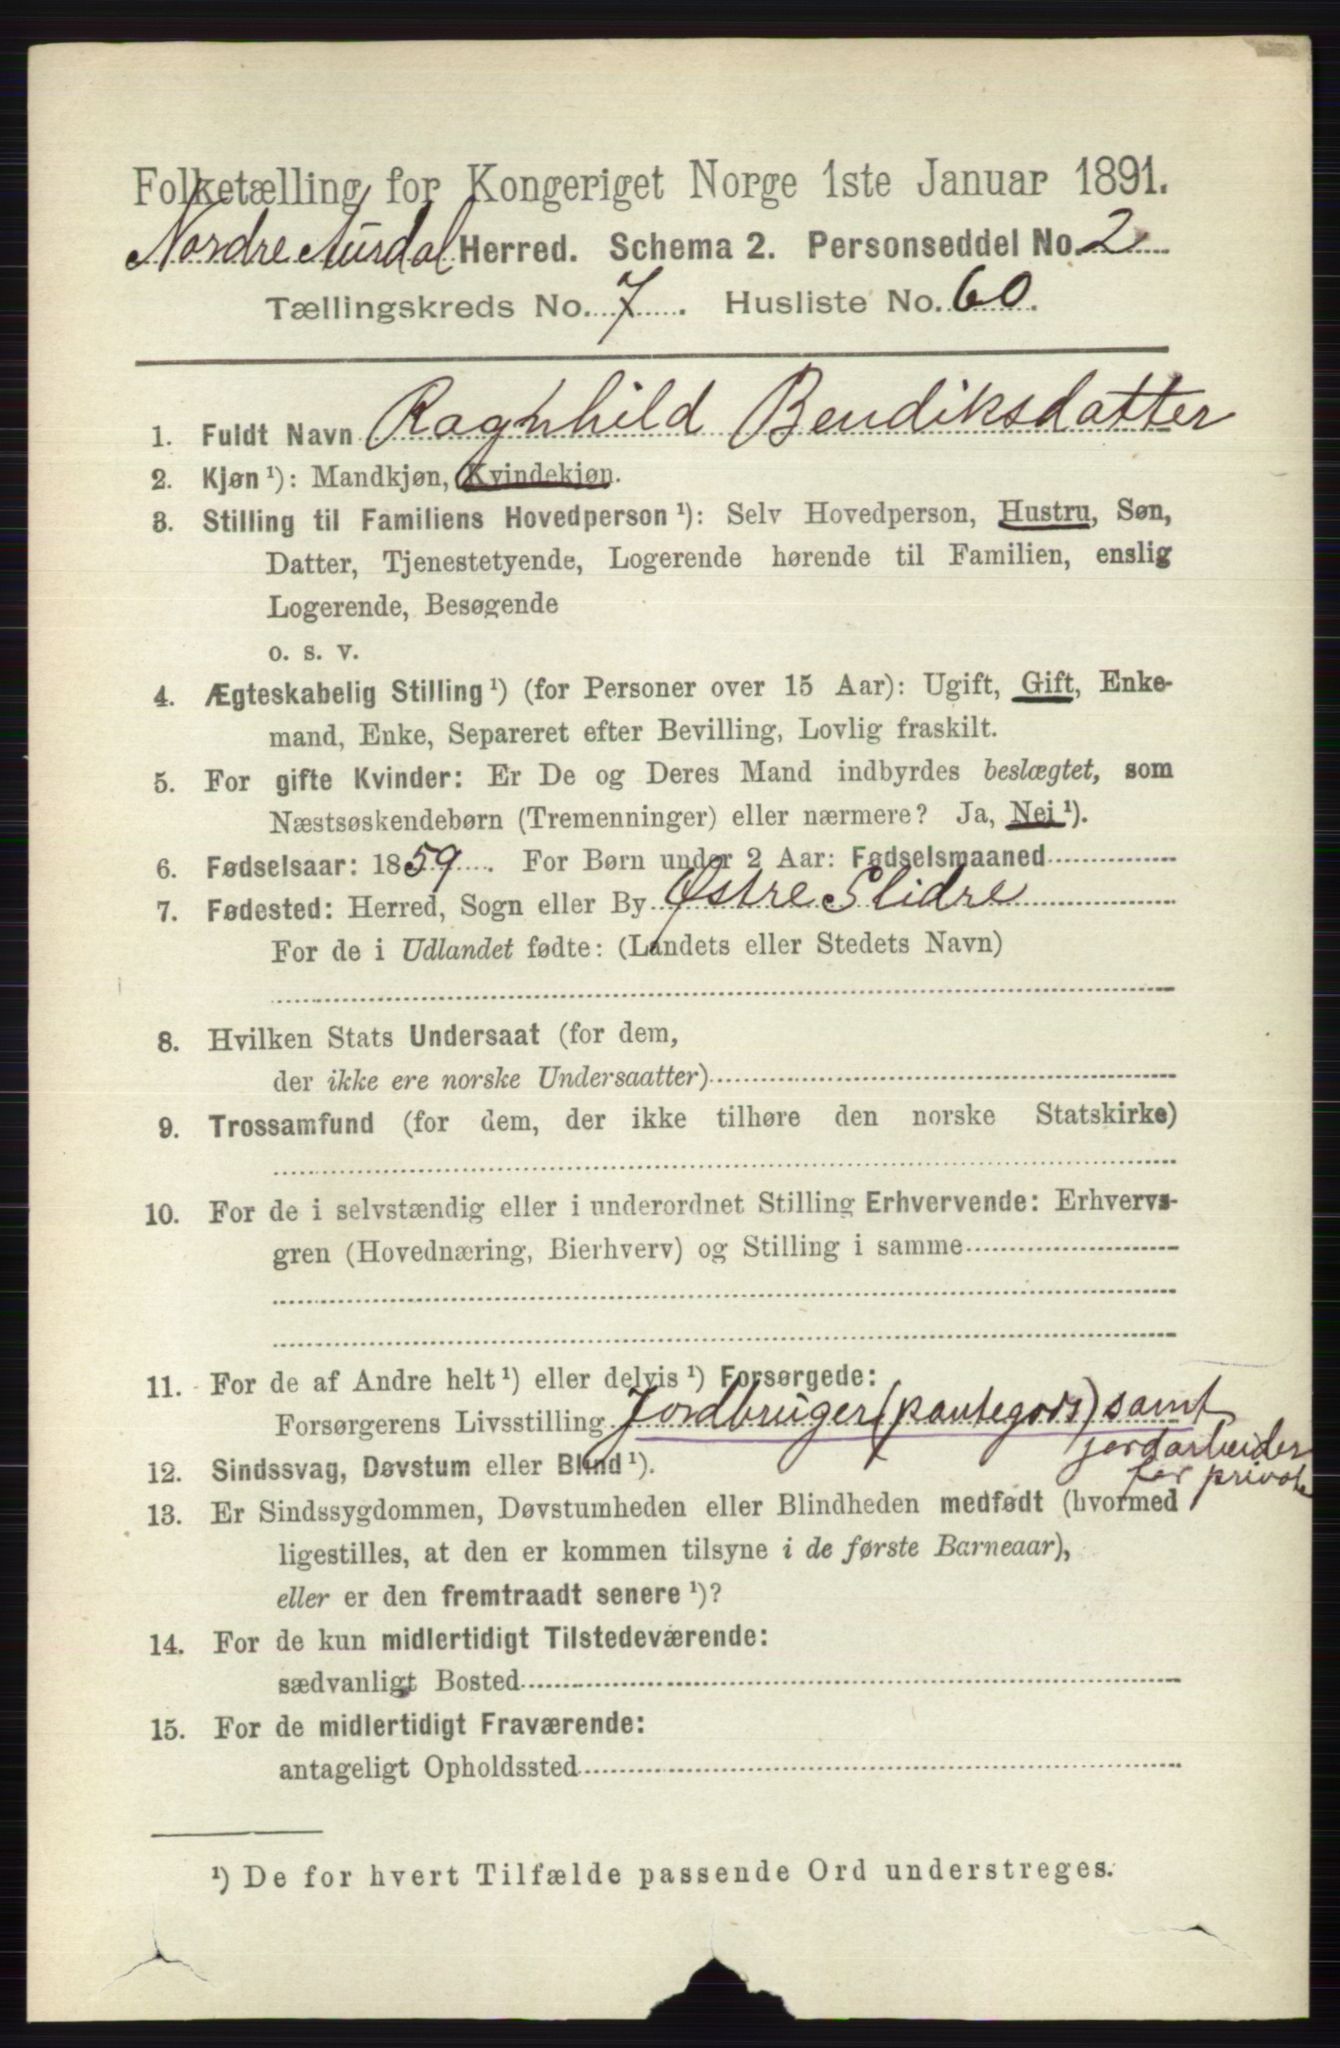 Folketælling for Kongeriget Norge 1ste Januar 1891.
Nordre Aurdal Herred. Schema 2. Personseddel No. 2
Tællingskreds No. 7. Husliste No. 60.
1. Fuldt Navn Ragnhild Bendiksdatter
2. Kjøn ¹): Mandkjøn, Kvindekjøn.
3. Stilling til Familiens Hovedperson ¹): Selv Hovedperson, Hustru, Søn,
Datter, Tjenestetyende, Logerende hørende til Familien, enslig
Logerende, Besøgende
o. s. v.
4. Ægteskabelig Stilling ¹) (for Personer over 15 Aar): Ugift, Gift, Enke-
mand, Enke, Separeret efter Bevilling, Lovlig fraskilt.
5. For gifte Kvinder: Er De og Deres Mand indbyrdes beslægtet, som
Næstsøskendebørn (Tremenninger) eller nærmere? Ja, Nei ¹).
6. Fødselsaar: 1859. For Børn under 2 Aar: Fødselsmaaned
7. Fødested: Herred, Sogn eller By Østre Slidre
For de i Udlandet fødte: (Landets eller Stedets Navn)
8. Hvilken Stats Undersaat (for dem,
der ikke ere norske Undersaatter)
9. Trossamfund (for dem, der ikke tilhøre den norske Statskirke)
10. For de i selvstændig eller i underordnet Stilling Erhvervende: Erhvervs-
gren (Hovednæring, Bierhverv) og Stilling i samme
11. For de af Andre helt ¹) eller delvis ¹) Forsørgede:
Forsørgerens Livsstilling Jordbruger (pantegods) samt
jordarbeider
for private
12. Sindssvag, Døvstum eller Blind ¹).
13. Er Sindssygdommen, Døvstumheden eller Blindheden medfødt (hvormed
ligestilles, at den er kommen tilsyne i de første Barneaar),
eller er den fremtraadt senere ¹)?
14. For de kun midlertidigt Tilstedeværende:
sædvanligt Bosted
15. For de midlertidigt Fraværende:
antageligt Opholdssted
¹) De for hvert Tilfælde passende Ord understreges.